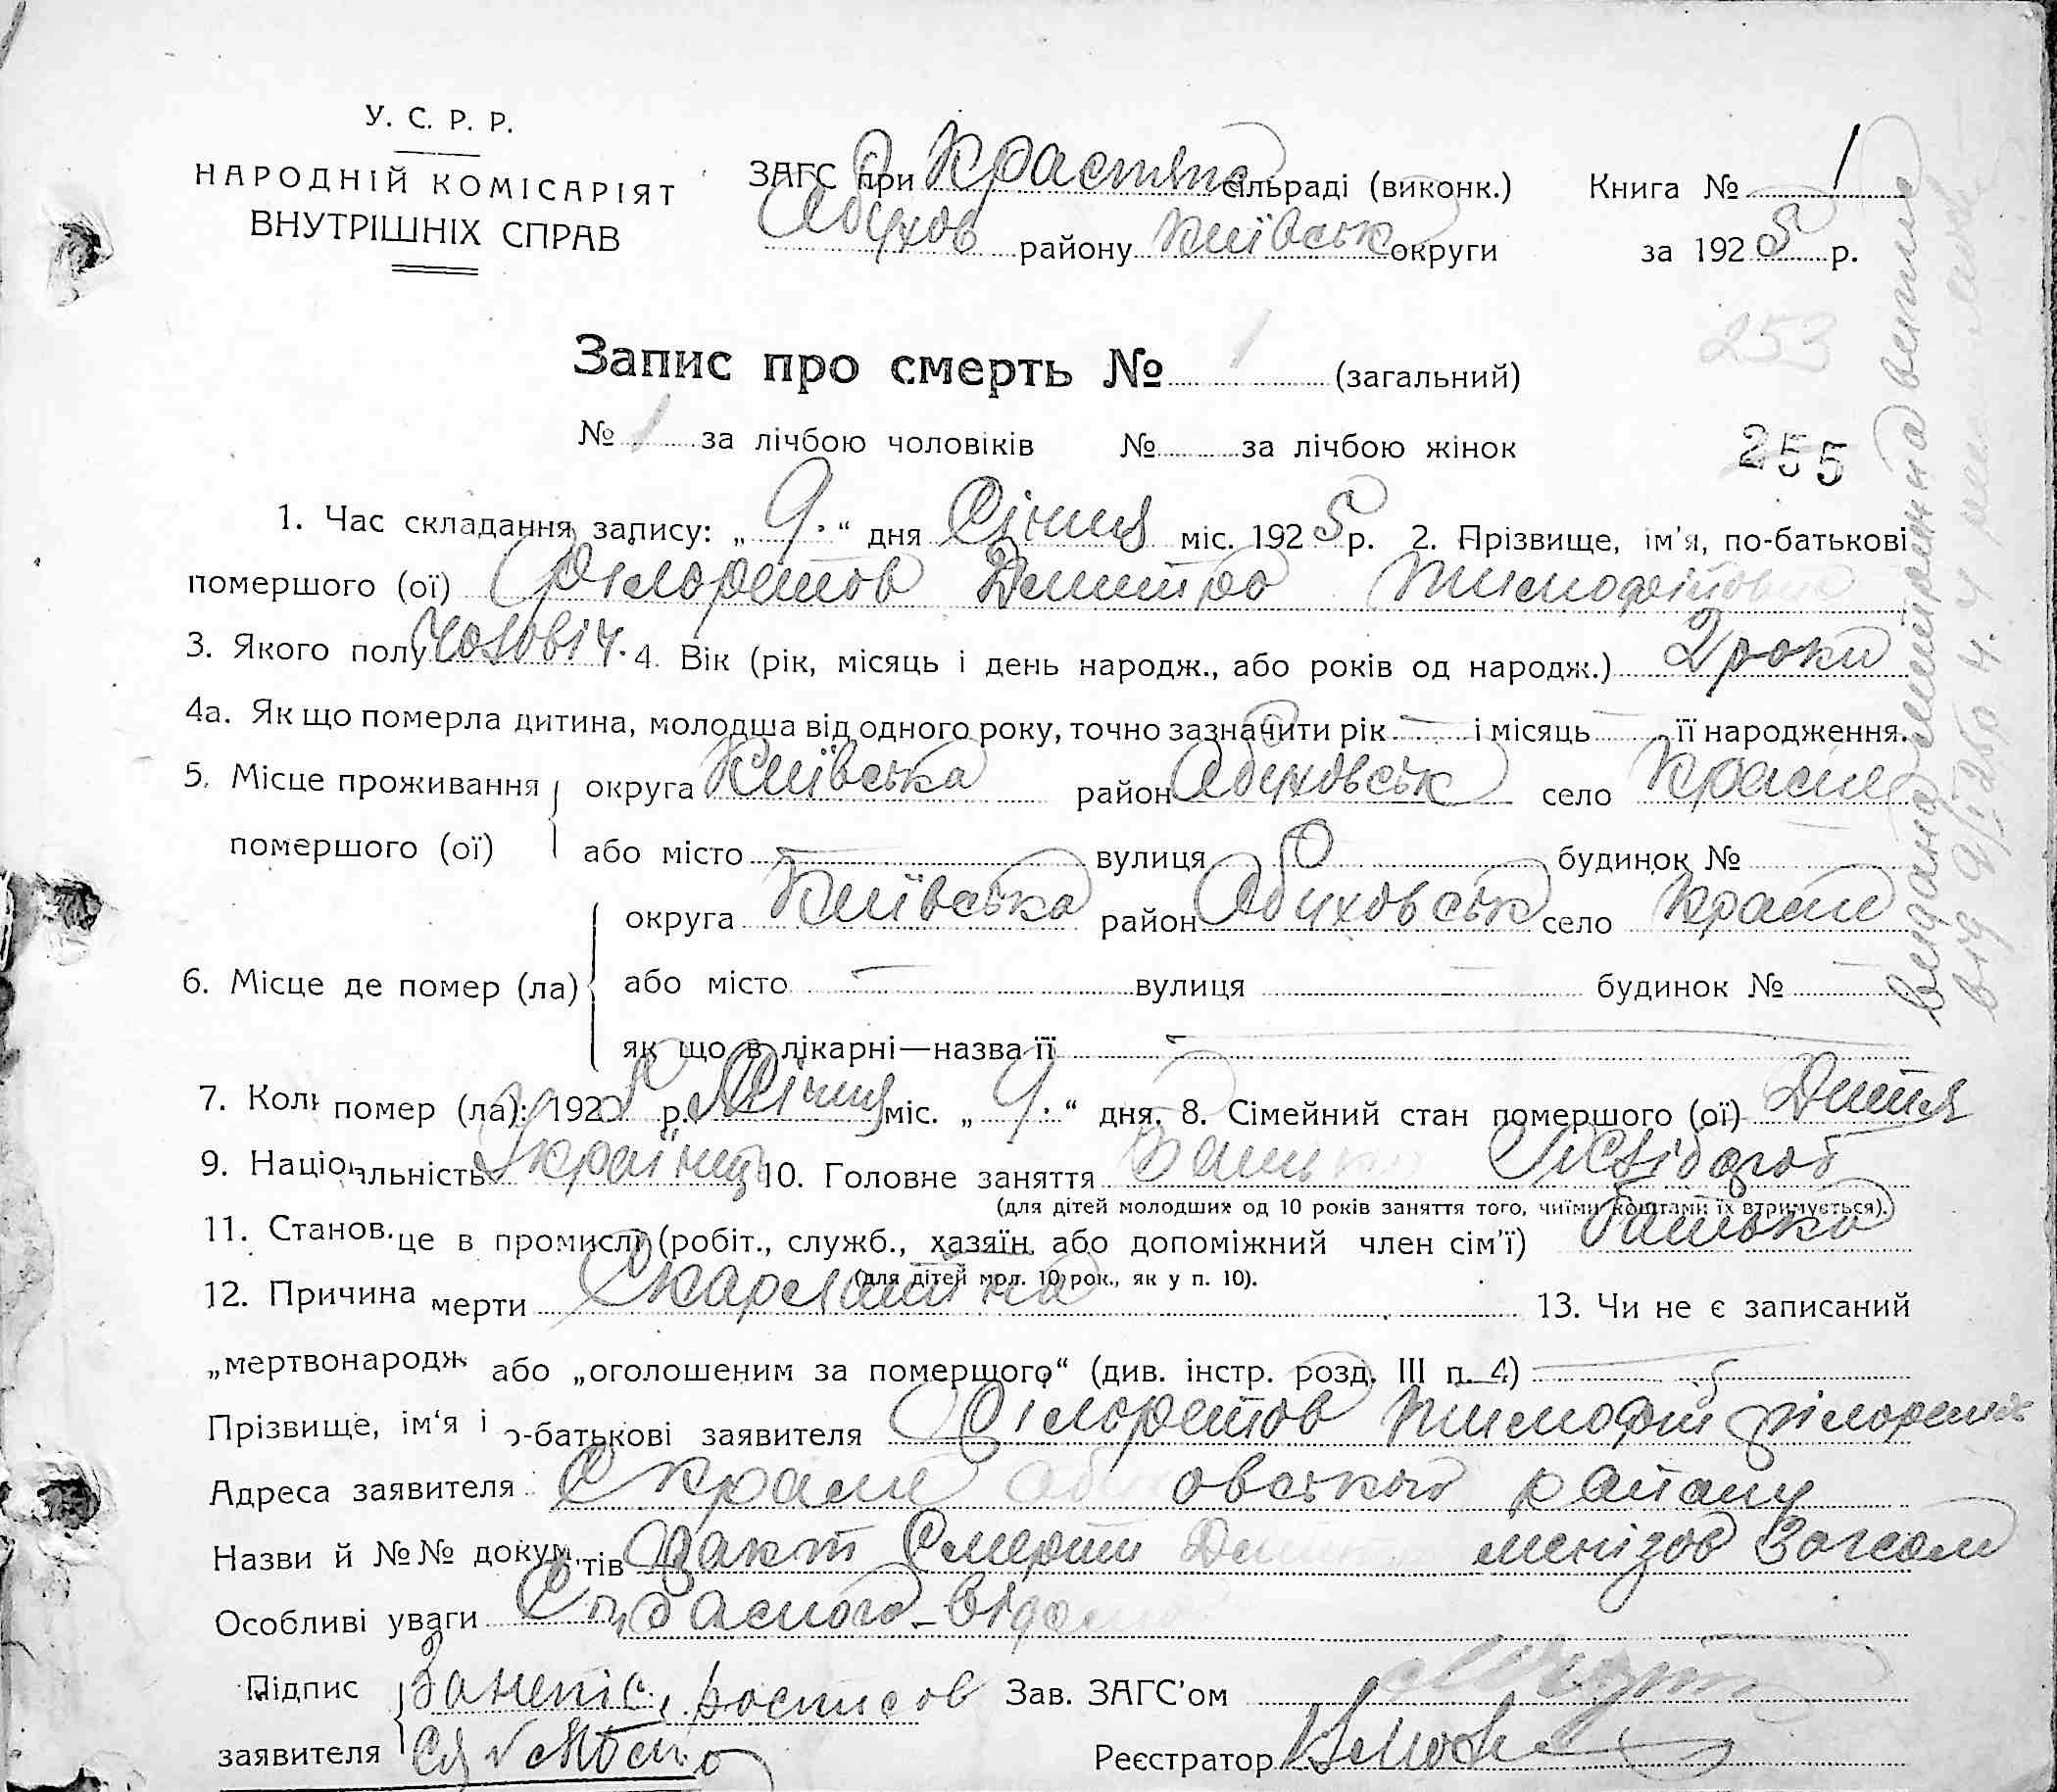 У. С. Р. Р.
НАРОДНІЙ КОМІСАРІЯТ
ВНУТРІШНІХ СПРАВ
ЗАГС при Краснян сільраді (виконк.)
Обухов району Київськ округи
Книга № 1
за 1925 р.
253
Запис про смерть № 1 (загальний)
№ 1 за лічбою чоловіків № за лічбою жінок
255
1. Час складання запису: „ 9 “ дня Січня міс. 1925 р. 2. Прізвище, ім'я, по-батькові
помершого (ої) Філоретов Дмитро Тимофійович
3. Якого полу Чоловіч. 4. Вік (рік, місяць і день народж., або років од народж.) 2 роки
4а. Як що померла дитина, молодша від одного року, точно зазначити рік — і місяць — її народження.
5. Місце проживання округа Київська район Обуховськ село Красне
помершого (ої) або місто — вулиця будинок №
округа Київська район Обуховськ село Красне
6. Місце де помер (ла) або місто — вулиця — будинок №
як що в лікарні—назва її —
7. Коли помер (ла): 1925 р. Січня міс. „ 9 “ дня. 8. Сімейний стан помершого (ої) Дитя
9. Національність Українц 10. Головне заняття Батько Хлібороб
(для дітей молодших од 10 років заняття того, чиїми коштами їх втримується).
11. Становце в промислі (робіт., служб., хазяїн або допоміжний член сім'ї) батько
(для дітей мол. 10 рок., як у п. 10).
12. Причина мерти Скарлатина 13. Чи не є записаний
„мертвонародж або „оголошеним за померщого“ (див. інстр. розд. III п. 4) —
Прізвище, ім'я і о-батькові заявителя Філоретов Тимофій Філоретов
Адреса заявителя С Красне Обуховський району
Назви й №№ докум. тів Факт Смерти Загсом
Особливі уваги
Підпис заявителя Занепіс. росписов
Зав. ЗАГС'ом
Реєстратор
видана
від 9/I 25